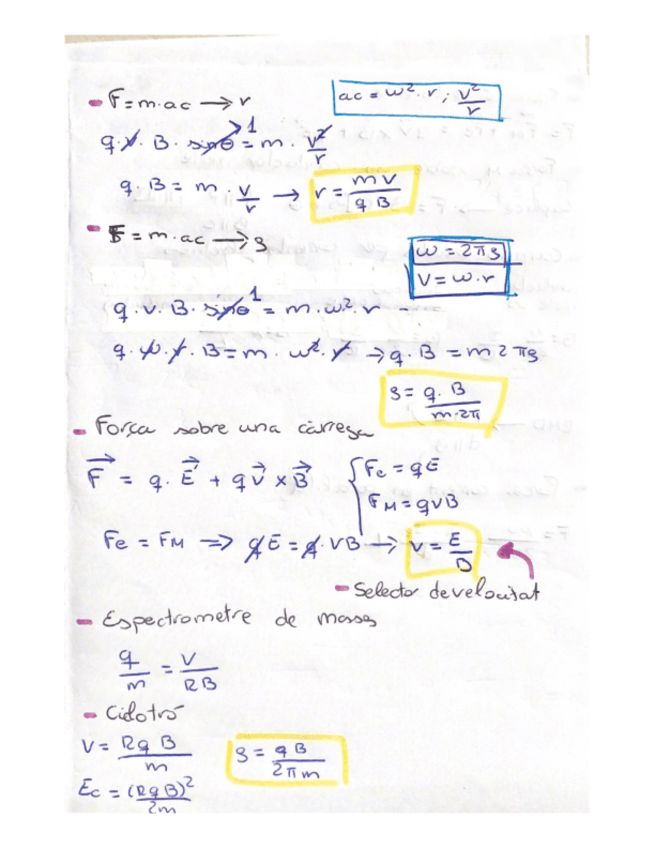 - F=m·ac → r
ac = ω²·r ; v²/r
q·v·B·sinθ = m · v²/r
1
q·B = m · v/r → r = mV/qB
- F = m·ac → f
ω = 2πf
V = ω·r
q·v·B·sinθ = m·ω²·r
1
q·ω·r·B = m·ω²·r → q·B = m 2πf
f = q·B/m·2π
- Força sobre una càrrega
F = q·E + q v × B { Fe = qE
FM = qVB
Fe = FM ⇒ qE = q·VB → V = E/B
- Selector de velocitat
- Espectrometre de masses
q/m = V/RB
- Ciclotró
V = RqB/m
f = qB/2πm
Ec = (RqB)²/2m